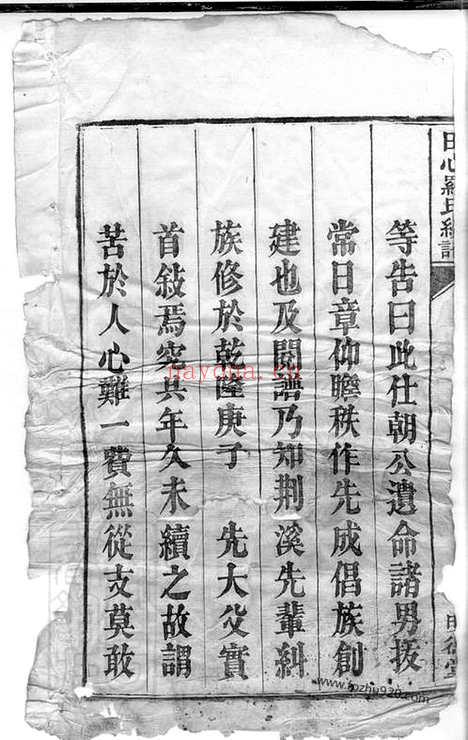 田心羅氏續譜
等告曰此仕朝公遺命諸男扳
常日章仰瞻秩作先成倡族創
建也及閱譜乃知荆溪先輩糾
族修於乾隆庚子　先大父實
首敍焉究其年久未續之故謂
苦於人心難一費無從支莫敢
naycha.cn